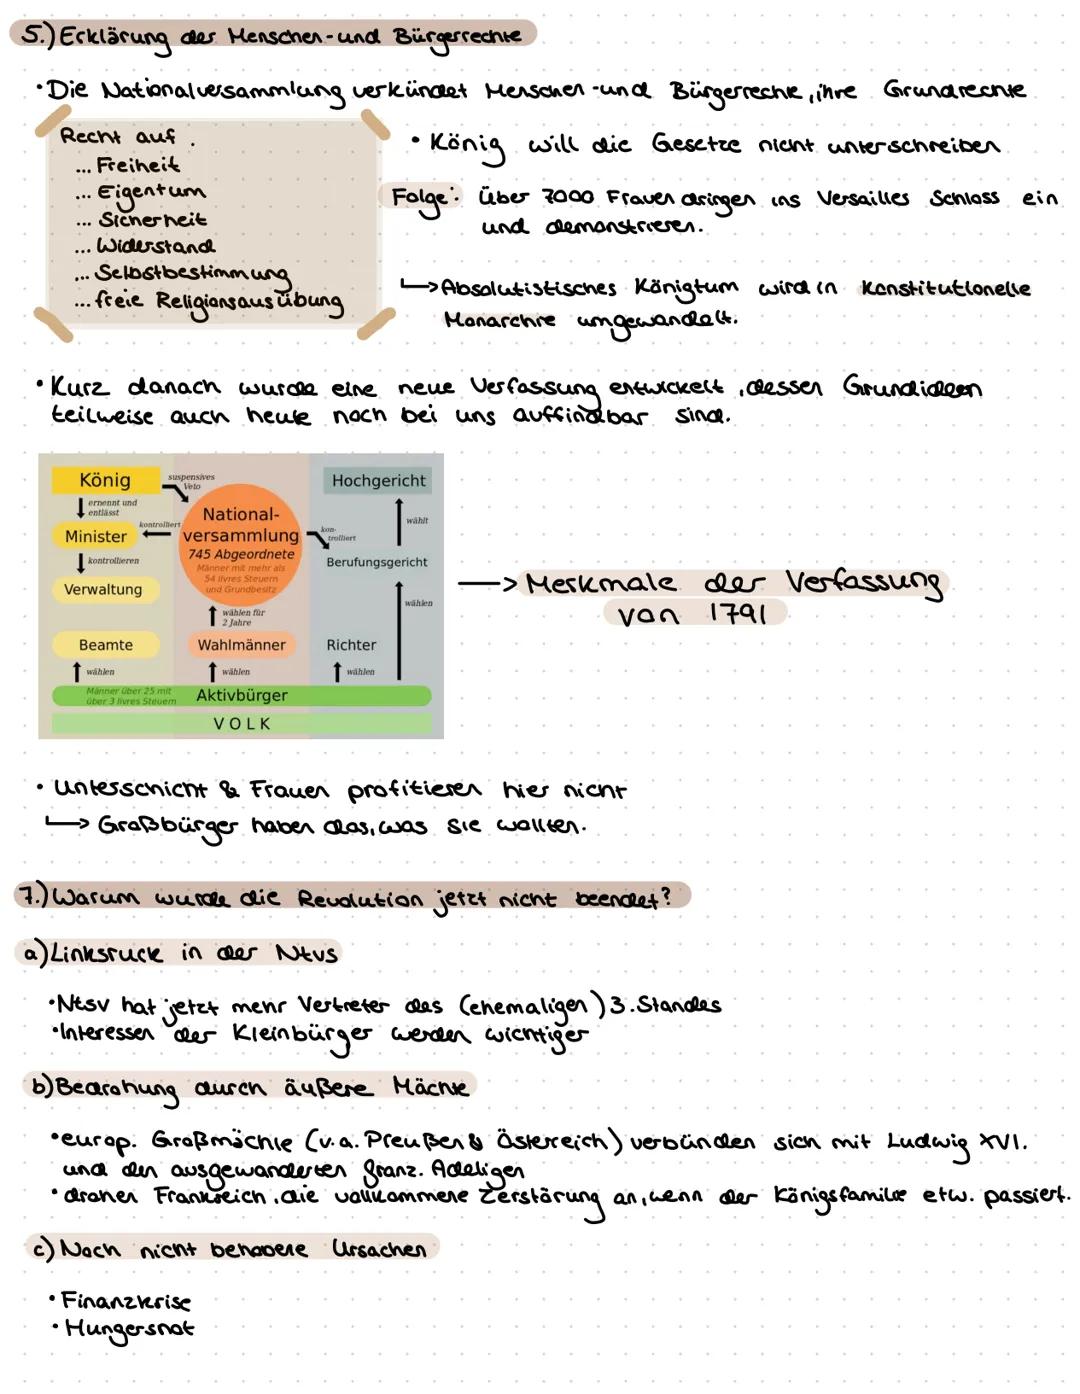 5.) Erklärung der Menschen-und Bürgerrechte
• Die Nationalversammlung verkündet Menschen-und Bürgerrechte, ihre Grundrechte
Recht auf
... Freiheit
... Eigentum
... Sicherheit
... Widerstand
... Selbstbestimmung
... freie Religionsausübung
• König will die Gesetze nicht unterschreiben
Folge: Über 7000 Frauen dringen ins Versailles Schloss ein
und demonstrieren.
↳ Absolutistisches Königtum wird in Konstitutionelle
Monarchie umgewandelt.
• Kurz danach wurde eine neue Verfassung entwickelt, dessen Grundideen
teilweise auch heute noch bei uns auffindbar sind.
König
suspensives
Veto
Hochgericht
ernennt und
entlässt
National-
versammlung
745 Abgeordnete
Männer mit mehr als
54 livres Steuern
und Grundbesitz
wählt
Minister
kontrolliert
kon-
trolliert
kontrollieren
Berufungsgericht
Verwaltung
wählen für
2 Jahre
wählen
Beamte
Wahlmänner
Richter
wählen
wählen
wählen
Männer über 25 mit
über 3 livres Steuern
Aktivbürger
VOLK
→ Merkmale der Verfassung
von 1791
• Unterschicht & Frauen profitieren hier nicht
↳ Großbürger haben das, was sie wollten.
7.) Warum wurde die Revolution jetzt nicht beendet?
a) Linksruck in der Ntvs
• Ntsv hat jetzt mehr Vertreter des (ehemaligen) 3. Standes
• Interessen der Kleinbürger werden wichtiger
b) Bedrohung durch äußere Mächte
• europ. Großmächte (v.a. Preußen & Österreich) verbünden sich mit Ludwig XVI.
und den ausgewanderten franz. Adeligen
• drohen Frankreich, die vollkommene Zerstörung an, wenn der Königsfamilie etw. passiert.
c) Noch nicht behobene Ursachen
• Finanzkrise
• Hungersnot